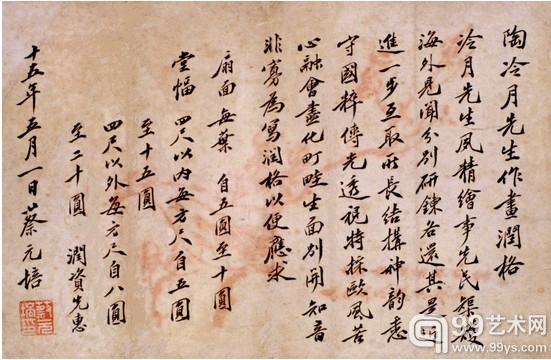 陶冷月先生作畫潤格
冷月先生夙精繪事先民榘矱
海外見聞分別研鍊各還其是近
進一步互取所長結構神韵悉
守國粹傳光透視特採歐風苦
心融會盡化町畦生面別開知音
非寡為寫潤格以便應求
扇面 每葉 自五圓至十圓
堂幅 四尺以內每方尺自五圓
至十五圓
四尺以外每方尺自八圓
至二十圓 潤資先惠
十五年五月一日蔡元培
99艺术网
www.99ys.com